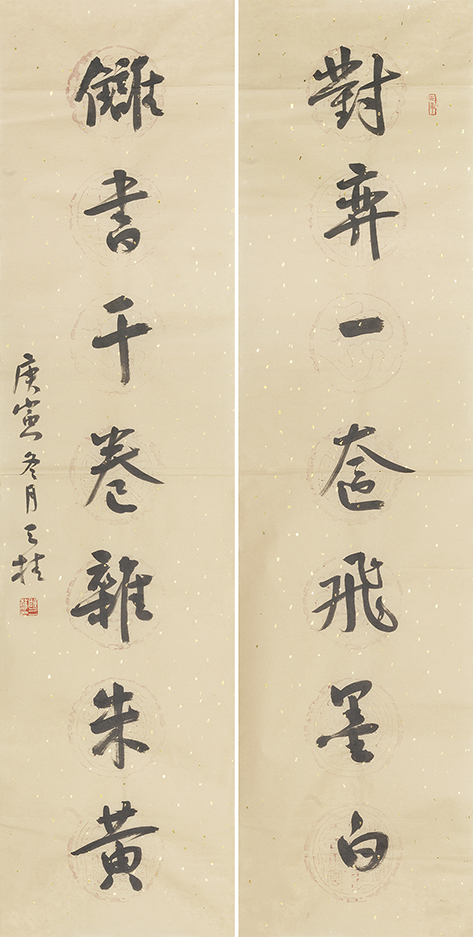 對弈一奩飛墨白
讎書千卷雜朱黃
庚寅冬月